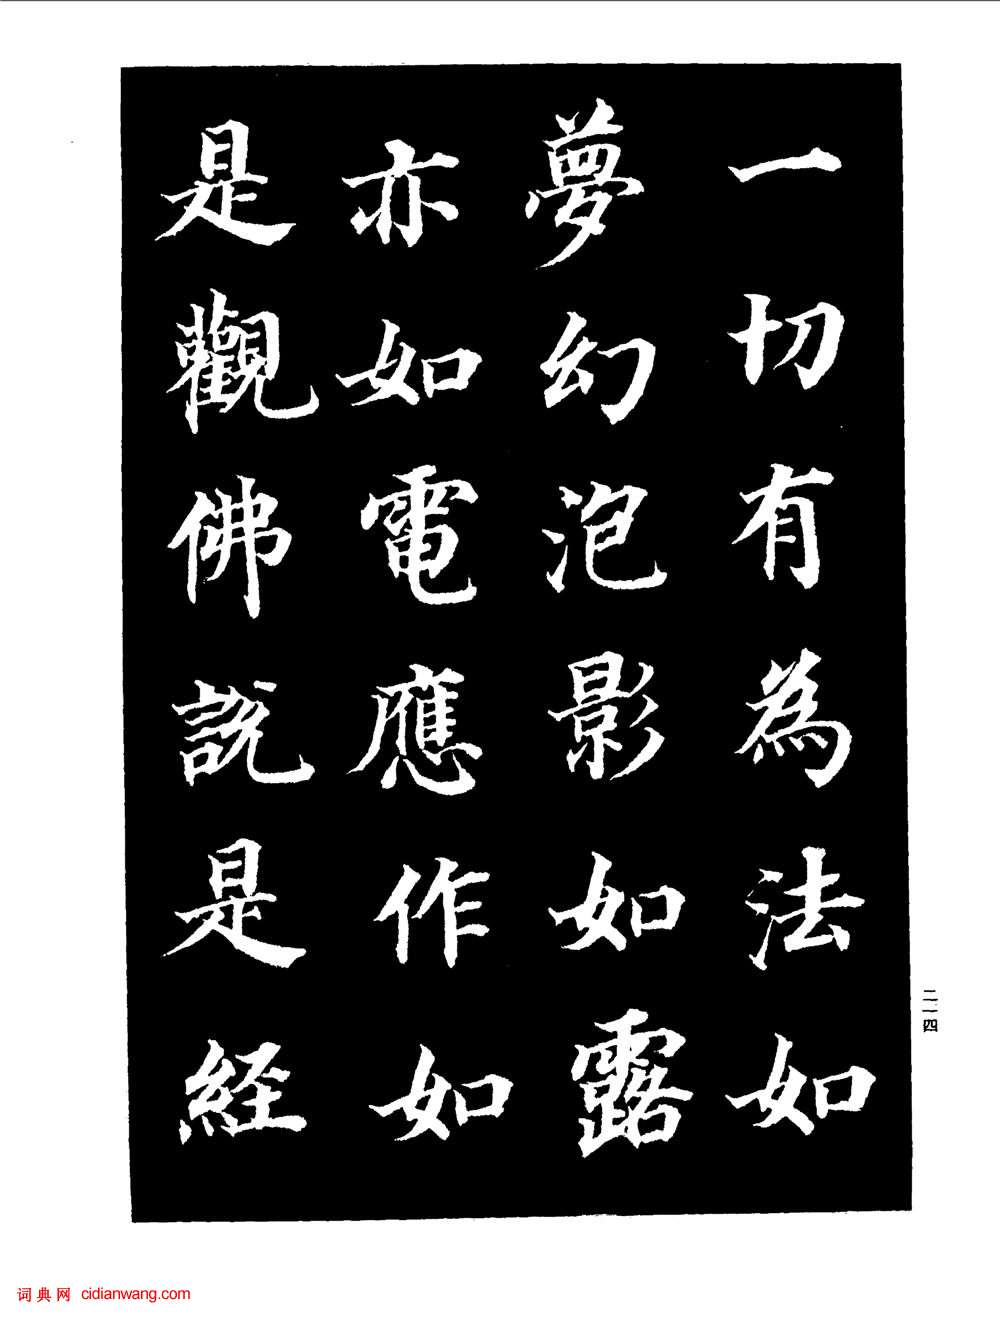 一切有為法如
夢幻泡影如露
亦如電應作如
是觀佛說是経
二一四
词典网 cidianwang.com